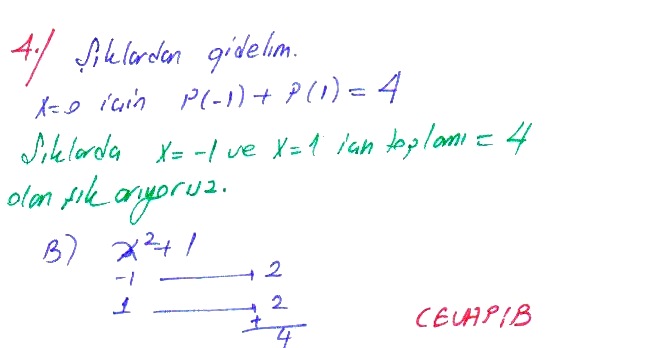 4.) Şıklardan gidelim.
x=0 için P(-1) + P(1) = 4
Şıklarda x = -1 ve x = 1 için toplamı = 4
olan şık arıyoruz.
B) x²+1
-1 → 2
1 → 2
+
4
CEVAP/B